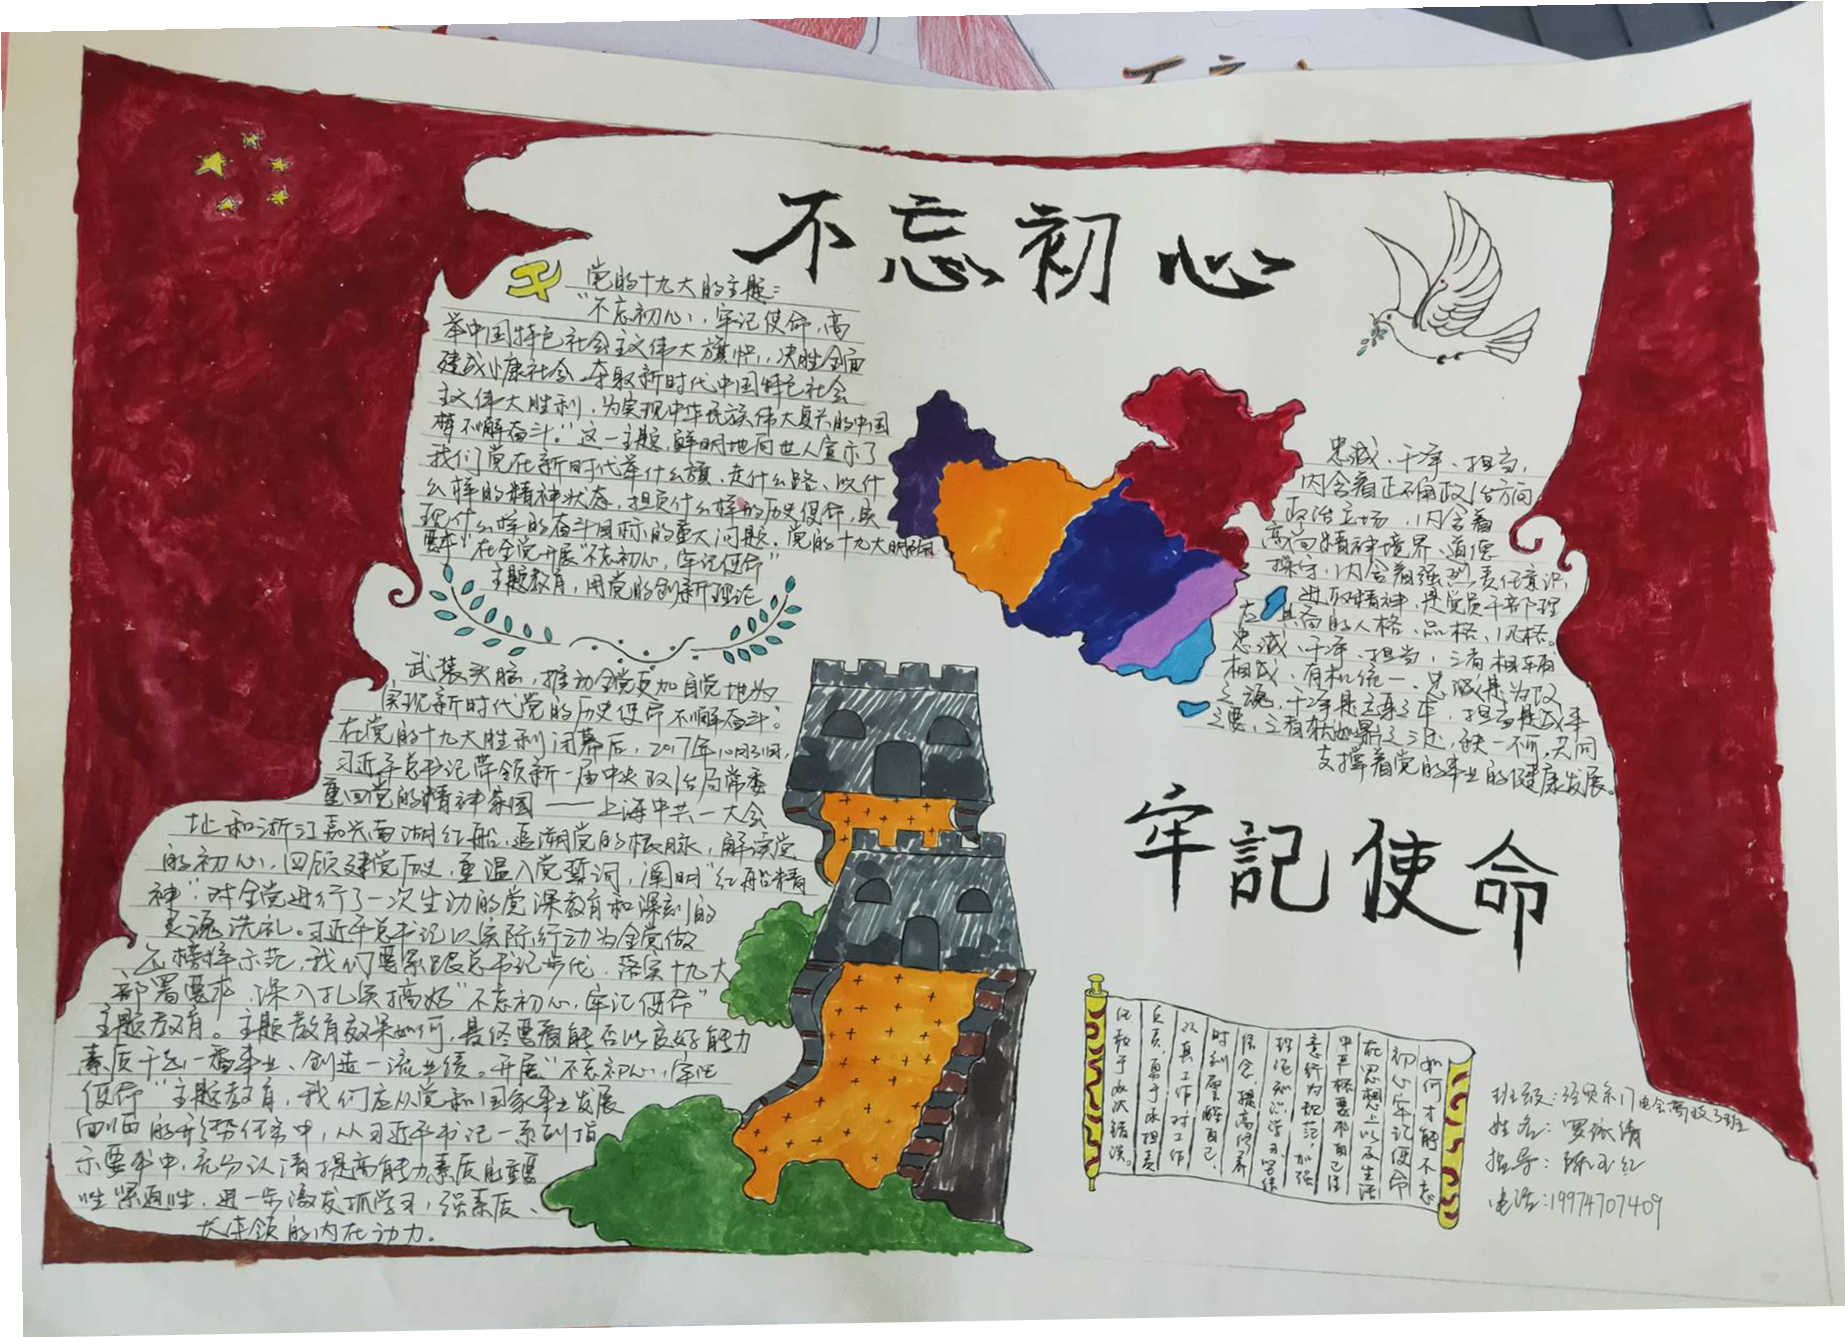 不忘初心
党的十九大的主题:
“不忘初心,牢记使命,高
举中国特色社会主义伟大旗帜,决胜全面
建成小康社会,夺取新时代中国特色社会
主义伟大胜利,为实现中华民族伟大复兴的中国
梦不懈奋斗。”这一主题,鲜明地向世人宣示了
我们党在新时代举什么旗、走什么路、以什
么样的精神状态、担负什么样的历史使命,实
现什么样的奋斗目标的重大问题。党的十九大明确
要求“在全党开展“不忘初心,牢记使命”
主题教育,用党的创新理论
武装头脑,推动全党更加自觉地为
实现新时代党的历史使命不懈奋斗。”
在党的十九大胜利闭幕后,2017年10月31日,
习近平总书记带领新一届中央政治局常委
重回党的精神家园——上海中共一大会
址和浙江嘉兴南湖红船,追溯党的根脉,解读党
的初心,回顾建党历史,重温入党誓词,阐明“红船精
神”,对全党进行了一次生动的党课教育和深刻的
灵魂洗礼。习近平总书记以实际行动为全党做
出榜样示范,我们要紧跟总书记步伐,落实十九大
部署要求,深入扎实搞好“不忘初心,牢记使命”
主题教育。主题教育效果如何,最终要看能否以良好能力
素质干出一番事业、创造一流业绩。开展“不忘初心,牢记
使命”主题教育,我们应从党和国家事业发展
面临的形势任务中,从习近平书记一系列指
示要求中,充分认清提高能力素质的重要
性紧迫性,进一步激发抓学习,强素质、
大本领的内在动力。
忠诚、干净、担当,
内含着正确政治方向
政治立场,内含着
高尚精神境界、道德
操守,内含着强烈责任意识,
进取精神,是党员干部理
应具备的人格、品格、风格。
忠诚、干净、担当,三者相辅
相成、有机统一,忠诚是为政
之魂,干净是立身之本,担当是成事
之要,三者犹如鼎之三足,缺一不可,共同
支撑着党的事业的健康发展。
牢記使命
如何才能不忘
初心牢记使命
在思想上以及生活
中严格要求自己注
意行为规范,加强
理论知识学习,坚持
信念,提高修养
时刻要鞭自己、
认真工作,对工作
负责,勇于承担责
任敢于承认错误。
班级:经贸系门电会高技3班
姓名:罗依清
指导:陈玉红
电话:19974707409